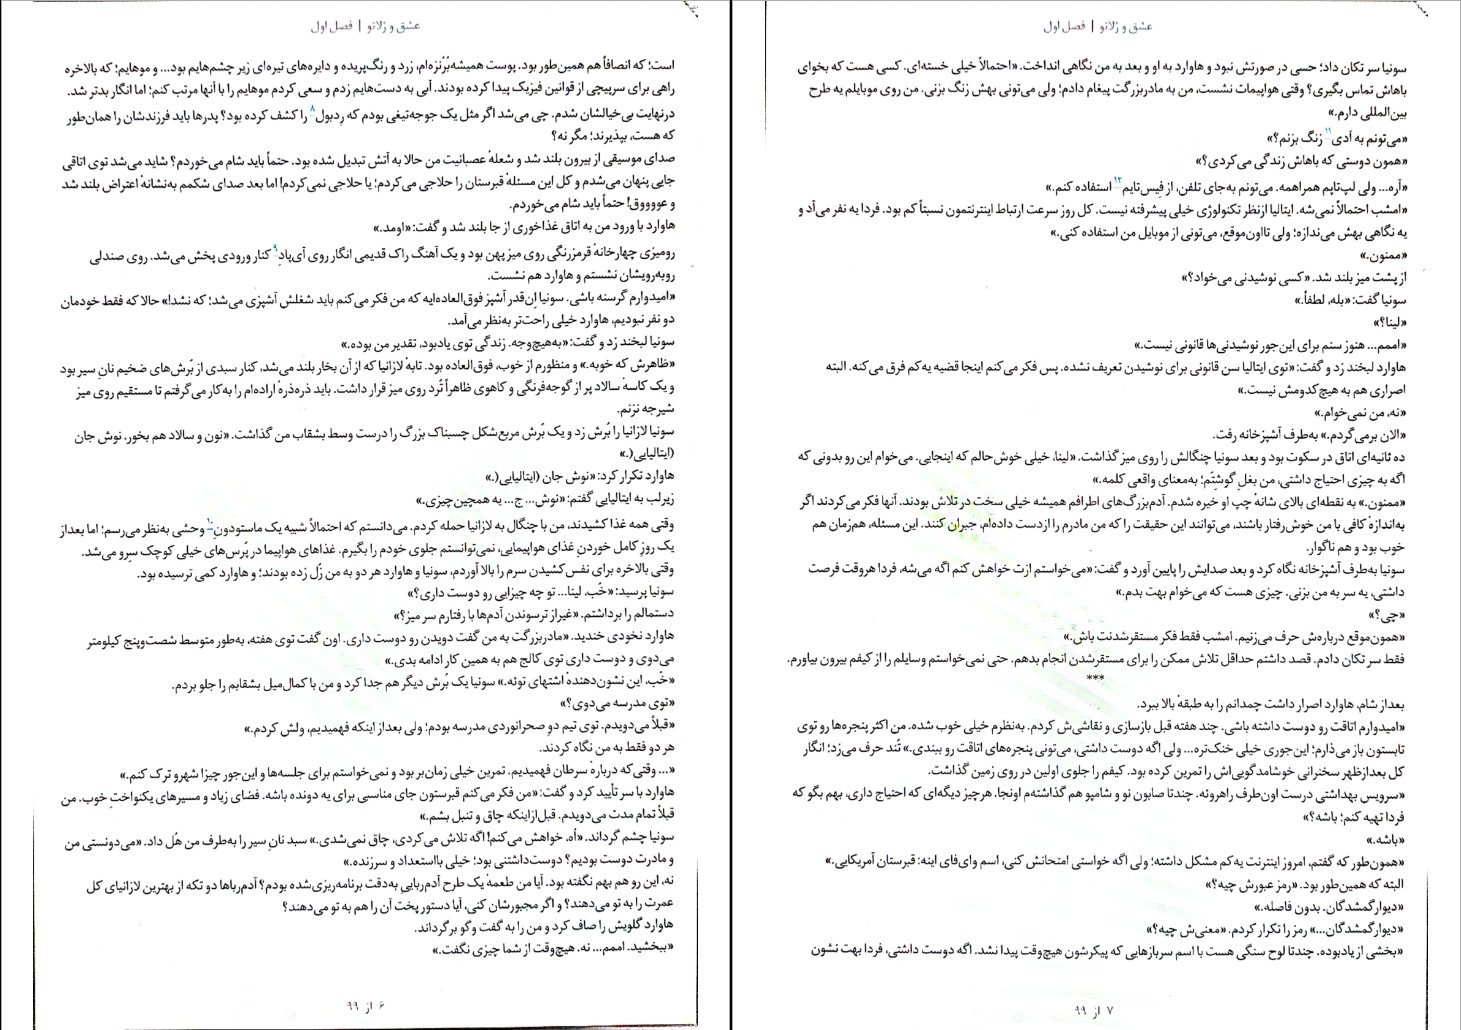 عشق و ژلاتو | فصل اول
است؛ که انصافاً هم همین‌طور بود. پوست همیشه‌بُرُنزه‌ام، زرد و رنگ‌پریده و دایره‌های تیره‌ای زیر چشم‌هایم بود... و موهایم؛ که بالاخره
راهی برای سرپیچی از قوانین فیزیک پیدا کرده بودند. آبی به دست‌هایم زدم و سعی کردم موهایم را با آنها مرتب کنم؛ اما انگار بدتر شد.
درنهایت بی‌خیالشان شدم. چی می‌شد اگر مثل یک جوجه‌تیغی بودم که رِدبول۸ را کشف کرده بود؟ پدرها باید فرزندشان را همان‌طور
که هست، بپذیرند؛ مگر نه؟
صدای موسیقی از بیرون بلند شد و شعلهٔ عصبانیت من حالا به آتش تبدیل شده بود. حتماً باید شام می‌خوردم؟ شاید می‌شد توی اتاقی
جایی پنهان می‌شدم و کل این مسئلهٔ قبرستان را حلاجی می‌کردم؛ یا حلاجی نمی‌کردم! اما بعد صدای شکمم به‌نشانهٔ اعتراض بلند شد
و عووووق! حتماً باید شام می‌خوردم.
هاوارد با ورود من به اتاق غذاخوری از جا بلند شد و گفت: «اومد.»
رومیزی چهارخانهٔ قرمزرنگی روی میز پهن بود و یک آهنگ راک قدیمی انگار روی آی‌پادِ۹ کنار ورودی پخش می‌شد. روی صندلی
روبه‌رویشان نشستم و هاوارد هم نشست.
«امیدوارم گرسنه باشی. سونیا اِن‌قدر آشپز فوق‌العاده‌ایه که من فکر می‌کنم باید شغلش آشپزی می‌شد؛ که نشد!» حالا که فقط خودمان
دو نفر نبودیم، هاوارد خیلی راحت‌تر به‌نظر می‌آمد.
سونیا لبخند زد و گفت: «به‌هیچ‌وجه. زندگی توی یادبود، تقدیر من بوده.»
«ظاهرش که خوبه.» و منظورم از خوب، فوق‌العاده بود. تابهٔ لازانیا که از آن بخار بلند می‌شد، کنار سبدی از بُرش‌های ضخیم نانِ سیر بود
و یک کاسهٔ سالاد پر از گوجه‌فرنگی و کاهوی ظاهراً تُرد روی میز قرار داشت. باید ذره‌ذرهٔ اراده‌ام را به‌کار می‌گرفتم تا مستقیم روی میز
شیرجه نزنم.
سونیا لازانیا را بُرش زد و یک بُرش مربع‌شکل چسبناک بزرگ را درست وسط بشقاب من گذاشت. «نون و سالاد هم بخور. نوش جان
(ایتالیایی(.»
هاوارد تکرار کرد: «نوش جان (ایتالیایی(.»
زیرلب به ایتالیایی گفتم: «نوش... ج... یه همچین‌چیزی.»
وقتی همه غذا کشیدند، من با چنگال به لازانیا حمله کردم. می‌دانستم که احتمالاً شبیه یک ماستودون۱۰ وحشی به‌نظر می‌رسم؛ اما بعداز
یک روز کامل خوردنِ غذای هواپیمایی، نمی‌توانستم جلوی خودم را بگیرم. غذاهای هواپیما در پُرس‌های خیلی کوچک سِرو می‌شد.
وقتی بالاخره برای نفس‌کشیدن سرم را بالا آوردم، سونیا و هاوارد هر دو به من زُل زده بودند؛ و هاوارد کمی ترسیده بود.
سونیا پرسید: «خُب، لینا... تو چه چیزایی رو دوست داری؟»
دستمالم را برداشتم. «غیراز ترسوندن آدم‌ها با رفتارم سر میز؟»
هاوارد نخودی خندید. «مادربزرگت به من گفت دویدن رو دوست داری. اون گفت توی هفته، به‌طور متوسط شصت‌وپنج کیلومتر
می‌دوی و دوست داری توی کالج هم به همین کار ادامه بدی.»
«خُب، این نشون‌دهندهٔ اشتهای توئه.» سونیا یک بُرش دیگر هم جدا کرد و من با کمال‌میل بشقابم را جلو بردم.
«توی مدرسه می‌دوی؟»
«قبلاً می‌دویدم. توی تیم دو صحرانوردی مدرسه بودم؛ ولی بعداز اینکه فهمیدیم، ولش کردم.»
هر دو فقط به من نگاه کردند.
«... وقتی‌که دربارهٔ سرطان فهمیدیم. تمرین خیلی زمان‌بر بود و نمی‌خواستم برای جلسه‌ها و این‌جور چیزا شهرو ترک کنم.»
هاوارد با سر تأیید کرد و گفت: «من فکر می‌کنم قبرستون جای مناسبی برای یه دونده باشه. فضای زیاد و مسیرهای یکنواختِ خوب. من
قبلاً تمام مدت می‌دویدم. قبل‌ازاینکه چاق و تنبل بشم.»
سونیا چشم گرداند. «اَه، خواهش می‌کنم! اگه تلاش می‌کردی، چاق نمی‌شدی.» سبد نانِ سیر را به‌طرف من هُل داد. «می‌دونستی من
و مادرت دوست بودیم؟ دوست‌داشتنی بود؛ خیلی بااستعداد و سرزنده.»
نه، این رو هم بهم نگفته بود. آیا من طعمهٔ یک طرح آدم‌رباییِ به‌دقت برنامه‌ریزی‌شده بودم؟ آدم‌رباها دو تکه از بهترین لازانیای کل
عمرت را به تو می‌دهند؟ و اگر مجبورشان کنی، آیا دستور پخت آن را هم به تو می‌دهند؟
هاوارد گلویش را صاف کرد و من را به گفت وگو برگرداند.
«ببخشید. اممم... نه. هیچ‌وقت از شما چیزی نگفت.»
۶ از ۹۹
عشق و ژلاتو | فصل اول
سونیا سر تکان داد؛ حسی در صورتش نبود و هاوارد به او و بعد به من نگاهی انداخت. «احتمالاً خیلی خسته‌ای. کسی هست که بخوای
باهاش تماس بگیری؟ وقتی هواپیمات نشست، من به مادربزرگت پیغام دادم؛ ولی می‌تونی بهش زنگ بزنی. من روی موبایلم یه طرح
بین‌المللی دارم.»
«می‌تونم به اَدی۱۱ زنگ بزنم؟»
«همون دوستی که باهاش زندگی می‌کردی؟»
«آره... ولی لپ‌تاپم همراهمه. می‌تونم به‌جای تلفن، از فِیس‌تایم۱۲ استفاده کنم.»
«امشب احتمالاً نمی‌شه. ایتالیا ازنظر تکنولوژی خیلی پیشرفته نیست. کل روز سرعت ارتباط اینترنتمون نسبتاً کم بود. فردا یه نفر می‌آد و
یه نگاهی بهش می‌ندازه؛ ولی تااون‌موقع، می‌تونی از موبایل من استفاده کنی.»
«ممنون.»
از پشت میز بلند شد. «کسی نوشیدنی می‌خواد؟»
سونیا گفت: «بله، لطفاً.»
«لینا؟»
«اممم... هنوز سنم برای این‌جور نوشیدنی‌ها قانونی نیست.»
هاوارد لبخند زد و گفت: «توی ایتالیا سن قانونی برای نوشیدن تعریف نشده. پس فکر می‌کنم اینجا قضیه یه‌کم فرق می‌کنه. البته
اصراری هم به هیچ‌کدومش نیست.»
«نه، من نمی‌خوام.»
«الان برمی‌گردم.» به‌طرف آشپزخانه رفت.
ده ثانیه‌ای اتاق در سکوت بود و بعد سونیا چنگالش را روی میز گذاشت. «لینا، خیلی خوش‌حالم که اینجایی. می‌خوام این رو بدونی که
اگه به چیزی احتیاج داشتی، من بغلِ گوشِتم؛ به‌معنای واقعی کلمه.»
«ممنون.» به نقطه‌ای بالای شانهٔ چپ او خیره شدم. آدم‌بزرگ‌های اطرافم همیشه خیلی سخت در تلاش بودند. آنها فکر می‌کردند اگر
به‌اندازهٔ کافی با من خوش‌رفتار باشند، می‌توانند این حقیقت را که من مادرم را ازدست داده‌ام، جبران کنند. این مسئله، هم‌زمان هم
خوب بود و هم ناگوار.
سونیا به‌طرف آشپزخانه نگاه کرد و بعد صدایش را پایین آورد و گفت: «می‌خواستم ازت خواهش کنم اگه می‌شه، فردا هروقت فرصت
داشتی، یه سر به من بزنی. چیزی هست که می‌خوام بهت بدم.»
«چی؟»
«همون‌موقع درباره‌ش حرف می‌زنیم. امشب فقط فکر مستقرشدنت باش.»
فقط سر تکان دادم. قصد داشتم حداقل تلاش ممکن را برای مستقرشدن انجام بدهم. حتی نمی‌خواستم وسایلم را از کیفم بیرون بیاورم.
***
بعداز شام، هاوارد اصرار داشت چمدانم را به طبقهٔ بالا ببرد.
«امیدوارم اتاقت رو دوست داشته باشی. چند هفته قبل بازسازی و نقاشی‌ش کردم. به‌نظرم خیلی خوب شده. من اکثر پنجره‌ها رو توی
تابستون باز می‌ذارم؛ این‌جوری خیلی خنک‌تره... ولی اگه دوست داشتی، می‌تونی پنجره‌های اتاقت رو ببندی.» تُند حرف می‌زد؛ انگار
کل بعدازظهر سخنرانی خوشامدگویی‌اش را تمرین کرده بود. کیفم را جلوی اولین در روی زمین گذاشت.
«سرویس بهداشتی درست اون‌طرف راهروئه. چندتا صابون نو و شامپو هم گذاشته‌م اونجا. هرچیز دیگه‌ای که احتیاج داری، بهم بگو که
فردا تهیه کنم؛ باشه؟»
«باشه.»
«همون‌طور که گفتم، امروز اینترنت یه‌کم مشکل داشته؛ ولی اگه خواستی امتحانش کنی، اسم وای‌فای اینه: قبرستان آمریکایی.»
البته که همین‌طور بود. «رمز عبورش چیه؟»
«دیوارگمشدگان. بدون فاصله.»
«دیوارگمشدگان...» رمز را تکرار کردم. «معنی‌ش چیه؟»
«بخشی از یادبوده. چندتا لوح سنگی هست با اسم سربازهایی که پیکرشون هیچ‌وقت پیدا نشد. اگه دوست داشتی، فردا بهت نشون
۷ از ۹۹